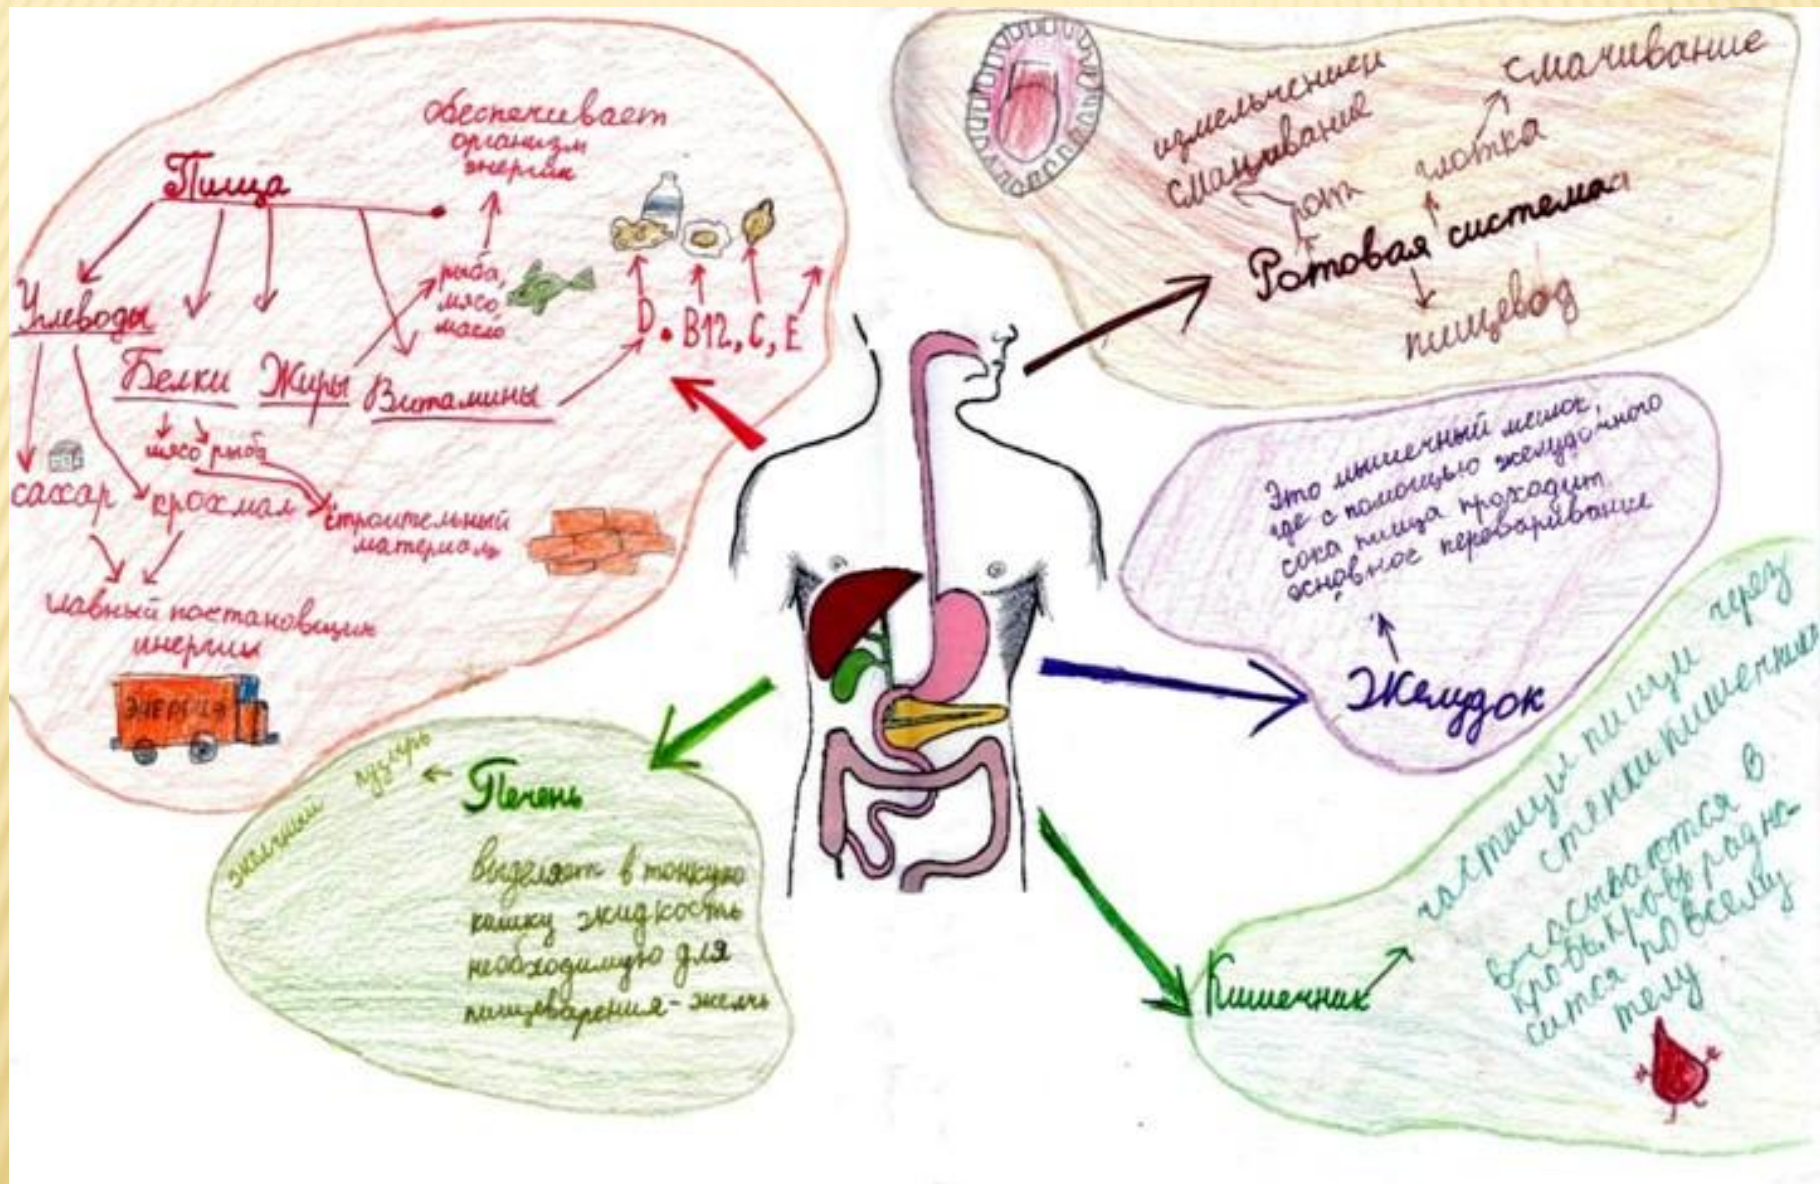 Пища
обеспечивает
организм
энергик
Углеводы
Белки
Жиры
Витамины
рыба,
мясо,
масло
D. B12, C, E
мясо рыба
сахар
крохмал
строительный
материаль
главный постановщик
инергии
ЭНЕРГИЯ
измельчении
смачивание
смачивание
рот
глотка
Ротовая система
пищевод
Это мышечный мешок,
где с помощью желудочного
сока пища проходит
основное переваривание
Желудок
Печень
желчный пузырь
выделяет в тонкую
кишку жидкость
необходимую для
пищеварения-желчь
Кишечник
частицы пищи через
стенки кишечника
всасываются в
кровь, кровь разно-
сится по всему
телу